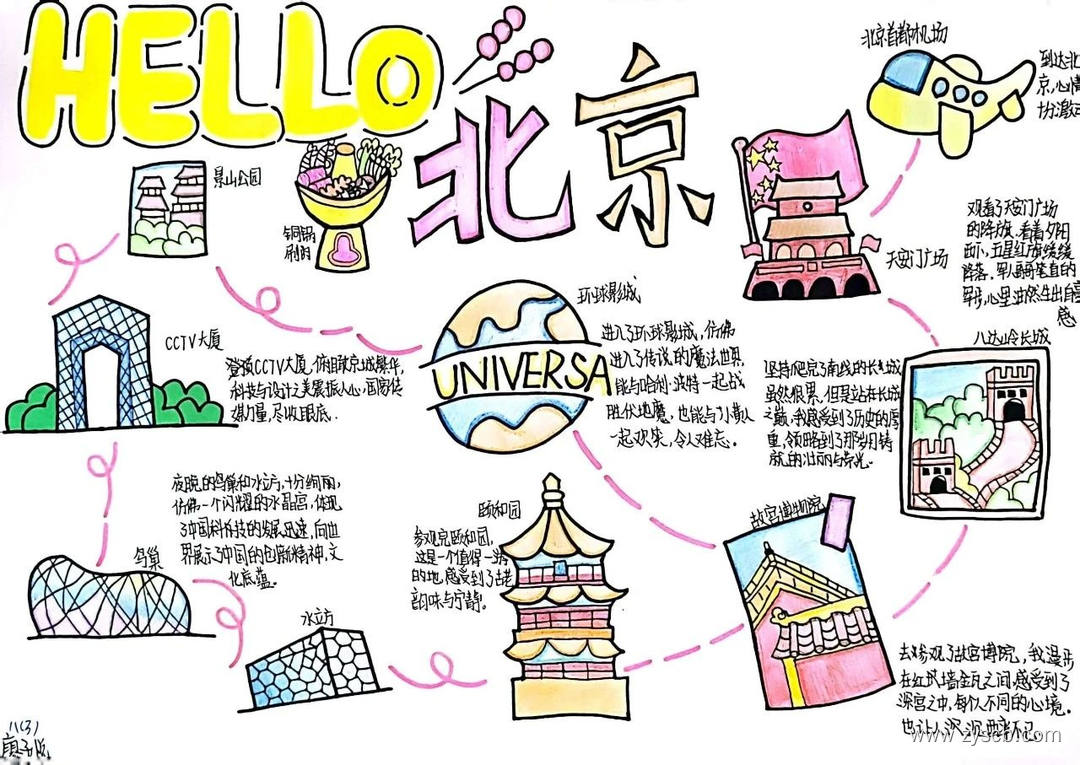 HELLO
北京
北京首都机场
到达北
京,心情
十分激动
景山公园
铜锅
刷肉
天安门广场
观看了天安门广场
的降旗,看着夕阳
西下,五星红旗缓缓
降落,军人哥哥笔直的
军姿,心里油然生出自豪
感
八达岭长城
坚持爬完了南线的长城
虽然很累,但是站在长城
之巅,我感受到了历史的厚
重,领略到了那岁月铸
就的壮丽与荣光。
环球影城
UNIVERSA
进入了环球影城,仿佛
进入了传说的魔法世界,
能与哈利·波特一起战
胜伏地魔,也能与小黄人
一起欢笑,令人难忘。
CCTV大厦
登顶CCTV大厦,俯瞰京城繁华,
科技与设计之美震撼人心,国家传
媒力量,尽收眼底.
夜晚的鸟巢和水立方,十分绚丽,
仿佛一个闪耀的水晶宫,体现
了中国科技的发展迅速,向世
界展示了中国的创新精神,文
化底蕴。
鸟巢
水立方
颐和园
参观完颐和园,
这是一个值得一游
的地,感受到了古老
韵味与宁静。
故宫博物院
去参观了故宫博院,我漫步
在红墙金瓦之间,感受到了
深宫之中,每个人不同的心境。
也让人沉
八(3)
www.zyscb.com